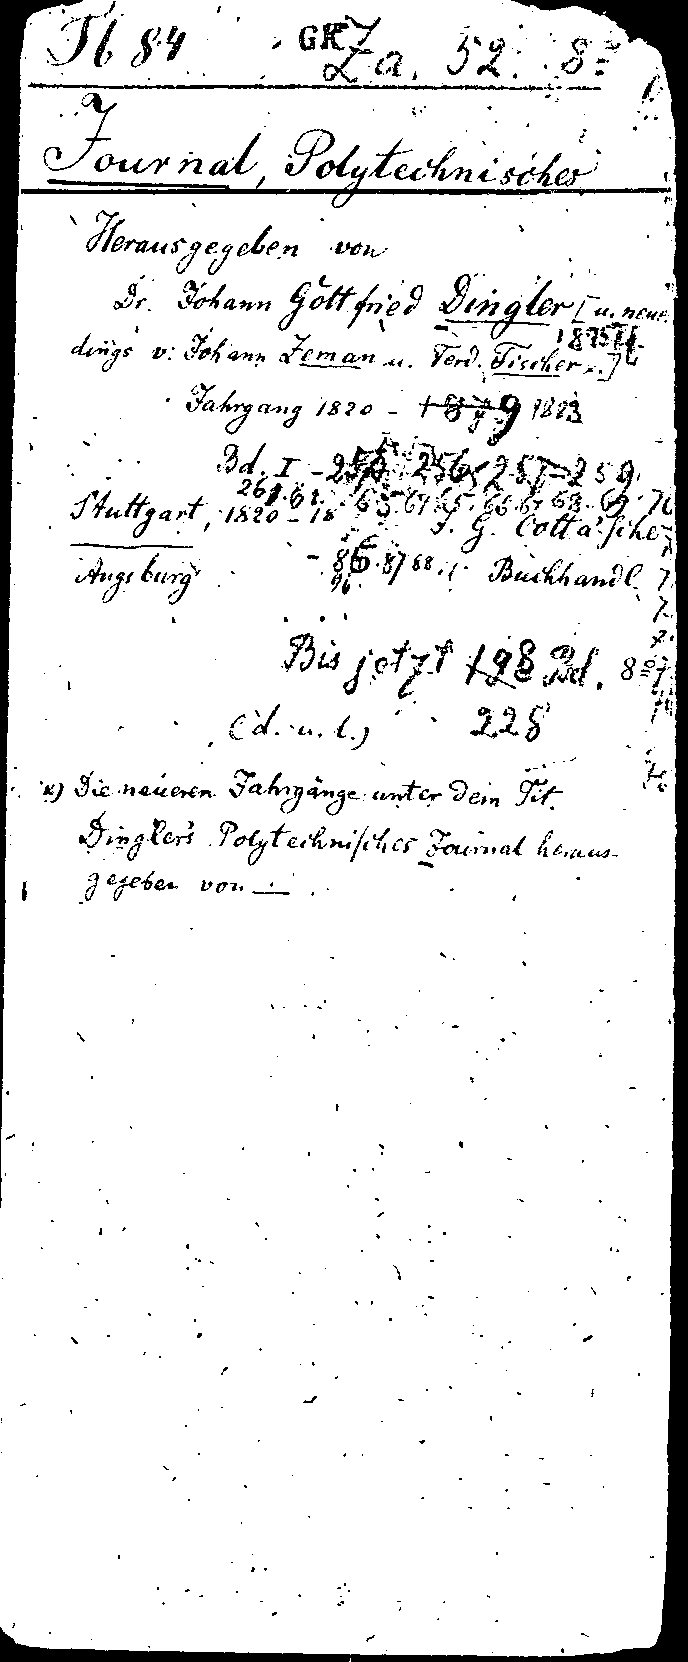 Tb 84 GKZ Za. 52. 8º
Journal, Polytechnisches
Herausgegeben von
Dr. Johann Gottfried Dingler [u. neuer
1875
dings v: Johann Zeman u. Ferd. Fischer x.]
Jahrgang 1820 - 1879 1883
Bd. I - 256 257-259.
Stuttgart, 1820 - 18 J. G. Cotta'sche
Augsburg - 86. 87 88. Buchhandl.
Bis jetzt 198 Bd. 8º
(d. u. l.) 228
x) Die neueren Jahrgänge unter dem Tit.
Dingler's Polytechnisches Journal heraus-
gegeben von —